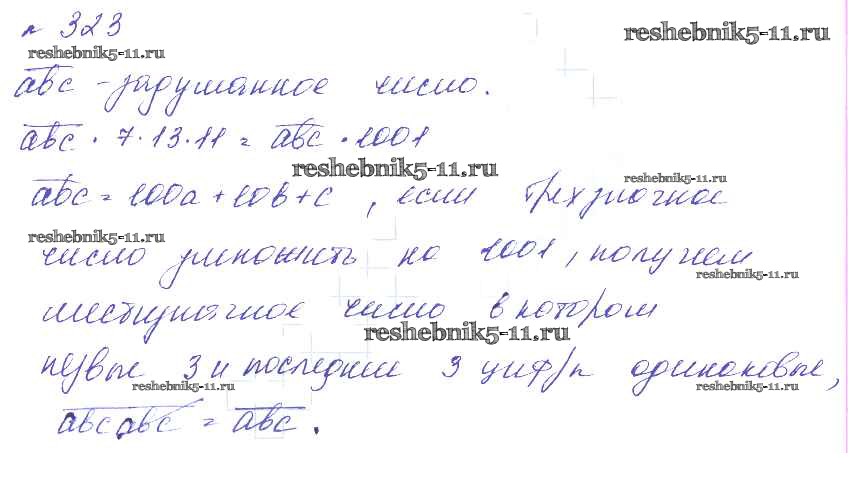 № 323
reshebnik5-11.ru
reshebnik5-11.ru
abc - задуманное число.
abc · 7 · 13 · 11 = abc · 1001
reshebnik5-11.ru
reshebnik5-11.ru
abc = 100a + 10b + c , если трехзначное
reshebnik5-11.ru
число умножить на 1001, получаем
reshebnik5-11.ru
шестизначное число в котором
reshebnik5-11.ru
первые 3 и последние 3 цифры одинаковые,
reshebnik5-11.ru
reshebnik5-11.ru
abcabc = abc .